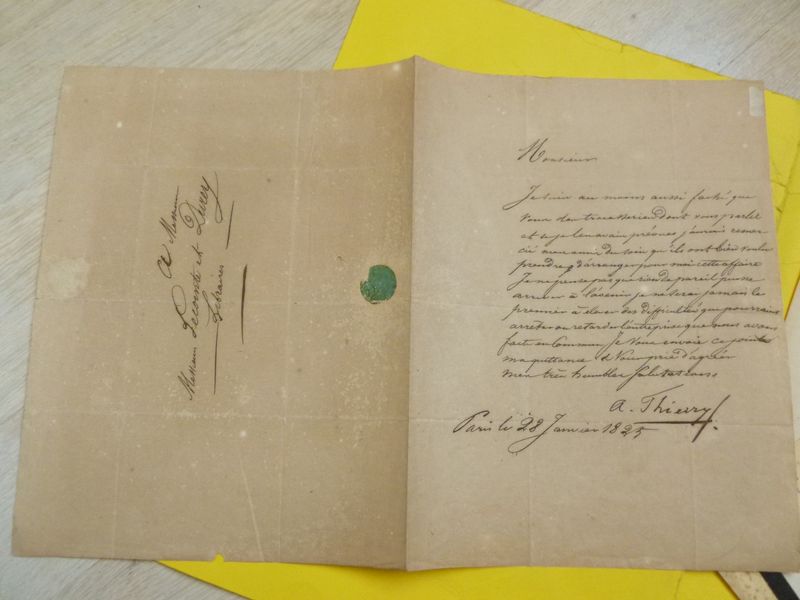 A Messieurs
Messieurs Lecointe et Durey
Libraires
Monsieur
Je suis au moins aussi faché que
vous des tracasseries dont vous parlez
et si je les avais prévues j'aurais remer
cié mes amis du soin qu'ils ont bien voulu
prendre d'arranger pour moi cette affaire
Je ne pense pas que rien de pareil puisse
arriver à l'avenir je ne serai jamais le
premier à élever des difficultés qui pourraient
arrêter ou retarder l'entreprise que nous avons
faite en commun Je vous envoie ci jointe
ma quittance & vous prie d'agréer
mes très humbles salutations
A. Thierry
Paris le 28 Janvier 1825